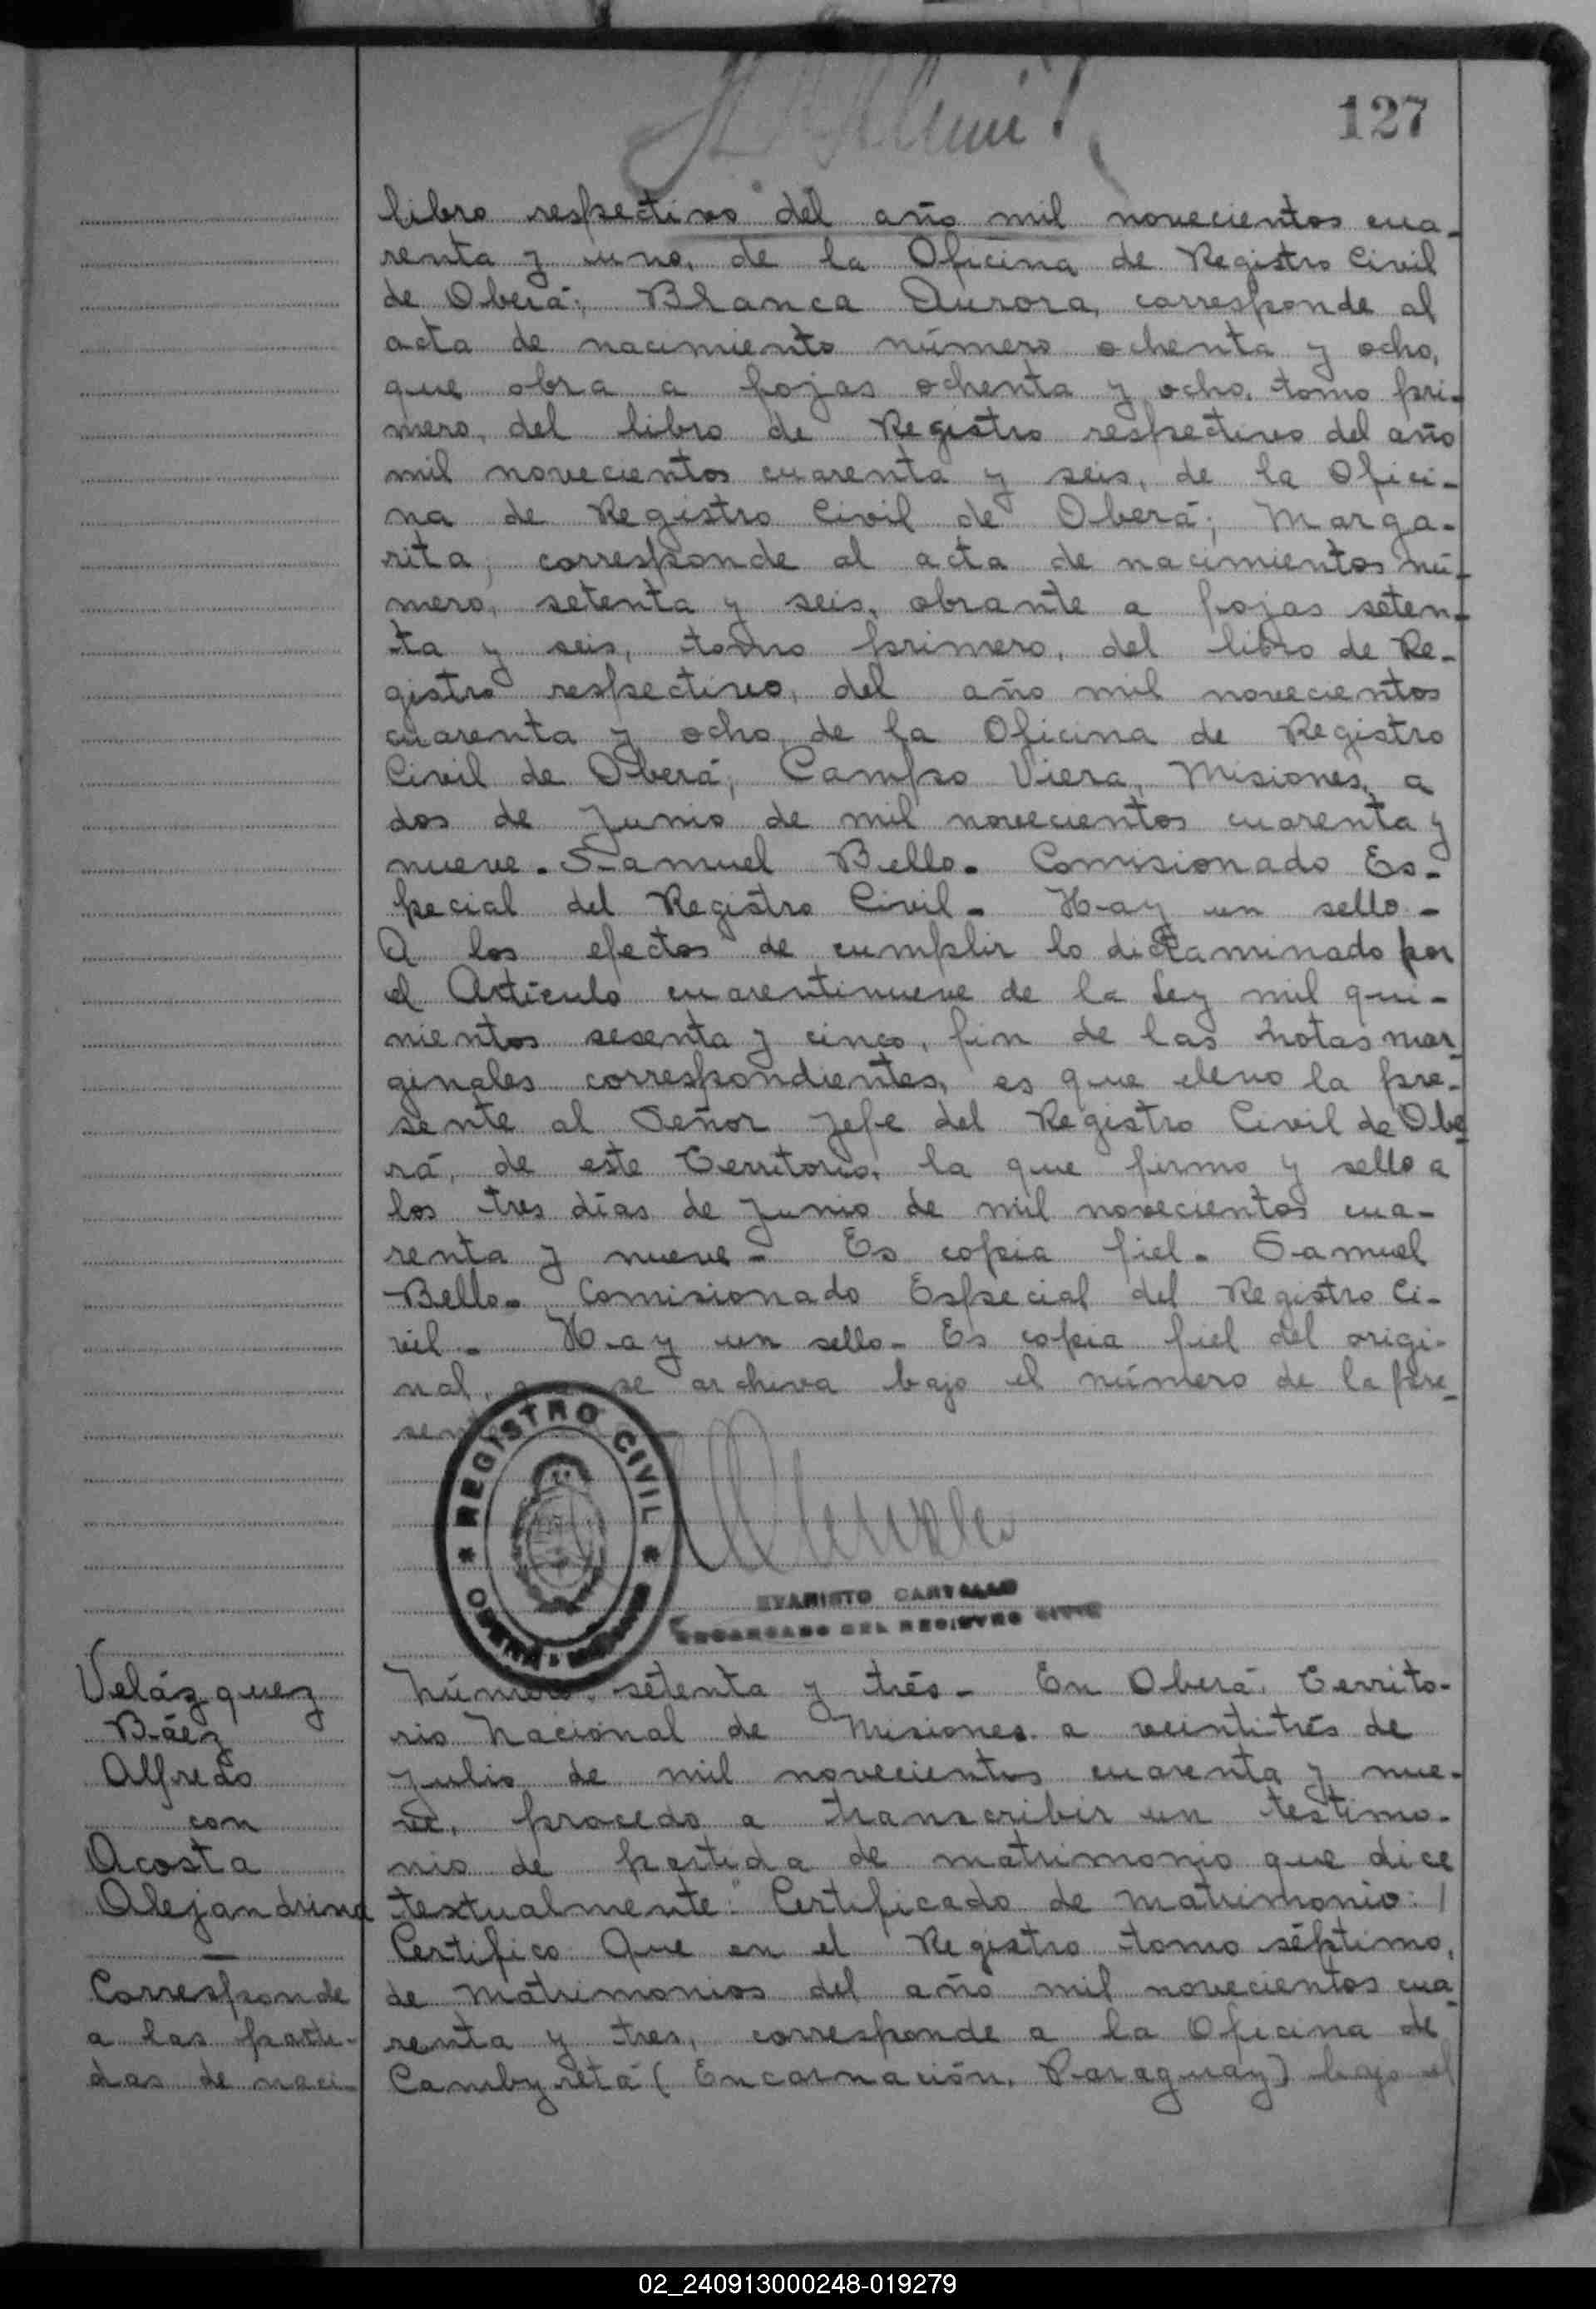 127
libro respectivo del año mil novecientos cua-
renta y uno, de la Oficina de Registro Civil
de Oberá; Blanca Aurora, corresponde al
acta de nacimiento número ochenta y ocho,
que obra a fojas ochenta y ocho, tomo pri-
mero, del libro de Registro respectivo del año
mil novecientos cuarenta y seis, de la Ofici-
na de Registro Civil de Oberá; Marga-
rita, corresponde al acta de nacimientos nú-
mero, setenta y seis, obrante a fojas seten-
ta y seis, tomo primero, del libro de Re-
gistro respectivo, del año mil novecientos
cuarenta y ocho, de la Oficina de Registro
Civil de Oberá; Campo Viera, Misiones, a
dos de Junio de mil novecientos cuarenta y
nueve. Samuel Bello. Comisionado Es-
pecial del Registro Civil - Hay un sello -
A los efectos de cumplir lo dictaminado por
el Artículo cuarentinueve de la Ley mil qui-
nientos sesenta y cinco, fin de las notas mar-
ginales correspondientes, es que elevo la pre-
sente al Señor Jefe del Registro Civil de Obe-
rá, de este Territorio, la que firmo y sello a
los tres días de Junio de mil novecientos cua-
renta y nueve - Es copia fiel. Samuel
Bello. Comisionado Especial del Registro Ci-
vil. Hay un sello - Es copia fiel del origi-
nal, que se archiva bajo el número de la pre-
REGISTRO CIVIL
OBERÁ
EVARISTO CARVALLO
ENCARGADO DEL REGISTRO CIVIL
Velázquez
Báez
Alfredo
con
Acosta
Alejandrina
Corresponde
a las parti-
das de naci-
Número, setenta y trés - En Oberá, Territo-
rio Nacional de Misiones a veintitrés de
Julio de mil novecientos cuarenta y nue-
ve, procedo a transcribir un testimo-
nio de partida de matrimonio que dice
textualmente: "Certificado de Matrimonio: /
Certifico Que en el Registro tomo séptimo,
de Matrimonios del año mil novecientos cua-
renta y tres, corresponde a la Oficina de
Cambyretá (Encarnación, Paraguay) bajo el
02_240913000248-019279